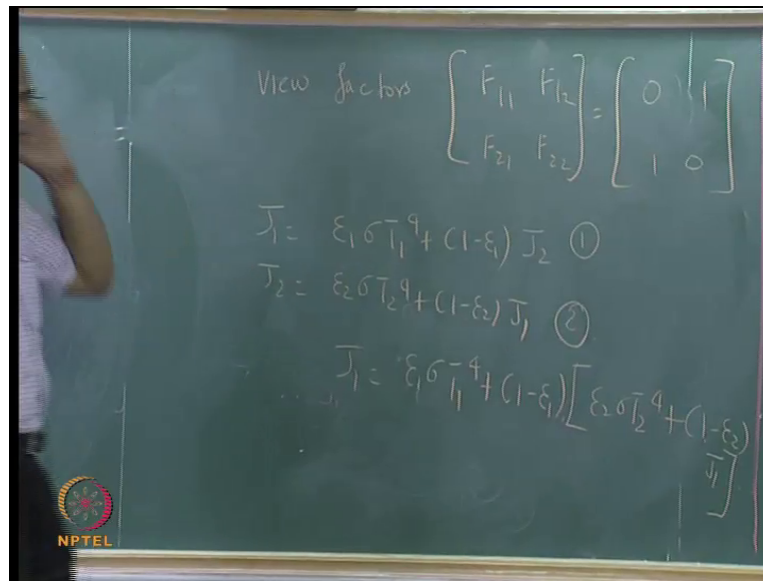 View factors [ F₁₁ F₁₂ ] = [ 0 1 ]
[ F₂₁ F₂₂ ] [ 1 0 ]
J₁ = ε₁σT₁⁴ + (1-ε₁) J₂ ①
J₂ = ε₂σT₂⁴ + (1-ε₂) J₁ ②
J₁ = ε₁σT₁⁴ + (1-ε₁) [ ε₂σT₂⁴ + (1-ε₂)
J₁ ]
NPTEL